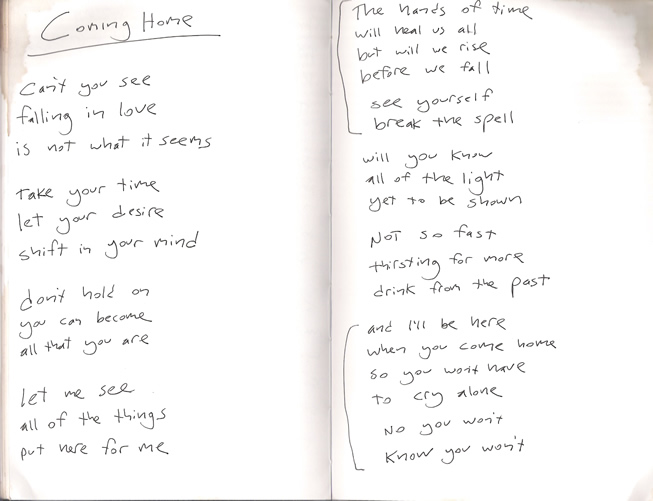 Coming Home
Can't you see
falling in love
is not what it seems
Take your time
let your desire
shift in your mind
don't hold on
you can become
all that you are
let me see
all of the things
put here for me
The hands of time
will heal us all
but will we rise
before we fall
see yourself
break the spell
will you know
all of the light
yet to be shown
Not so fast
thirsting for more
drink from the past
and I'll be here
when you come home
so you won't have
to cry alone
No you won't
Know you won't